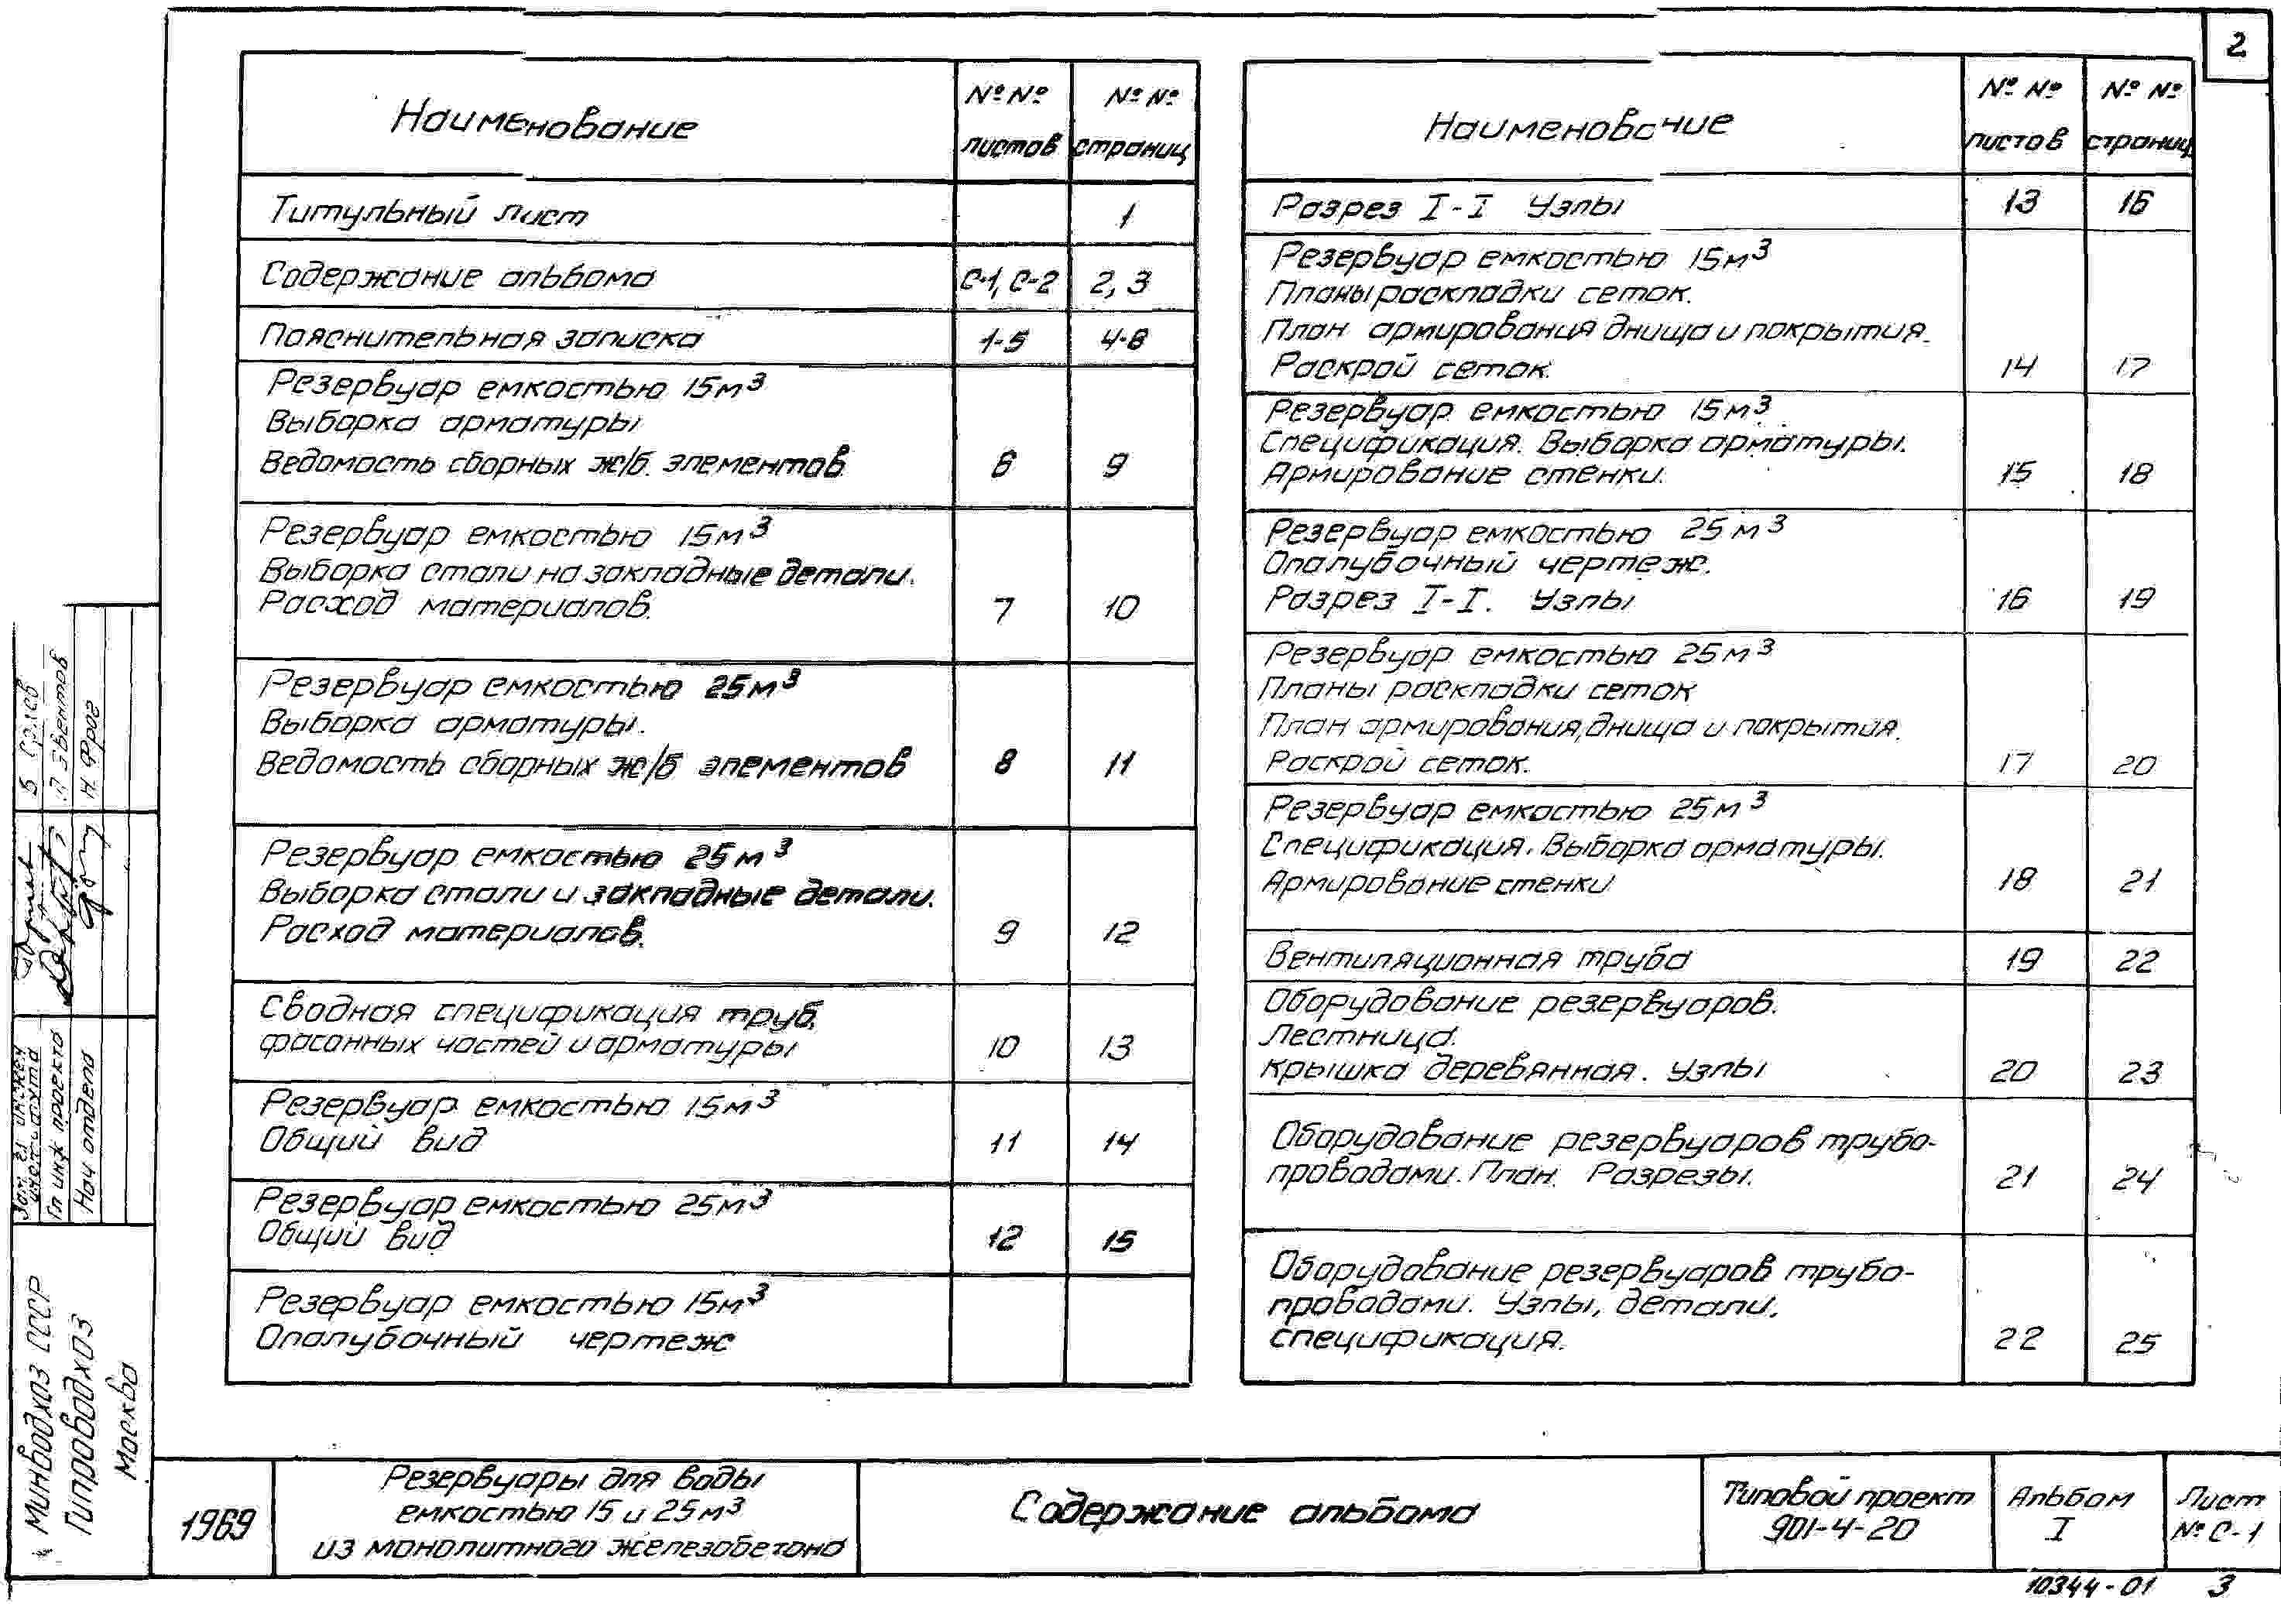 2
Наименование
№№ листов
№№ страниц
Титульный лист 1
Содержание альбома С-1, С-2 2, 3
Пояснительная записка 1-5 4-8
Резервуар емкостью 15м³
Выборка арматуры
Ведомость сборных ж/б. элементов 6 9
Резервуар емкостью 15м³
Выборка стали на закладные детали.
Расход материалов. 7 10
Резервуар емкостью 25м³
Выборка арматуры.
Ведомость сборных ж/б элементов 8 11
Резервуар емкостью 25м³
Выборка стали и закладные детали.
Расход материалов. 9 12
Сводная спецификация труб,
фасонных частей и арматуры 10 13
Резервуар емкостью 15м³
Общий вид 11 14
Резервуар емкостью 25м³
Общий вид 12 15
Резервуар емкостью 15м³
Опалубочный чертеж
Наименование
№№ листов
№№ страниц
Разрез I-I Узлы 13 16
Резервуар емкостью 15м³
Планы раскладки сеток.
План армирования днища и покрытия.
Раскрой сеток. 14 17
Резервуар емкостью 15м³
Спецификация. Выборка арматуры.
Армирование стенки. 15 18
Резервуар емкостью 25м³
Опалубочный чертеж.
Разрез I-I. Узлы 16 19
Резервуар емкостью 25м³
Планы раскладки сеток
План армирования, днища и покрытия.
Раскрой сеток. 17 20
Резервуар емкостью 25м³
Спецификация. Выборка арматуры.
Армирование стенки 18 21
Вентиляционная труба 19 22
Оборудование резервуаров.
Лестница.
Крышка деревянная. Узлы 20 23
Оборудование резервуаров трубо-
проводами. План. Разрезы. 21 24
Оборудование резервуаров трубо-
проводами. Узлы, детали,
спецификация. 22 25
Гл инж проекта
Нач отдела Н. Фрог
Минводхоз СССР
Гипроводхоз
Москва
1969
Резервуары для воды
емкостью 15 и 25м³
из монолитного железобетона
Содержание альбома
Типовой проект
901-4-20
Альбом
I
Лист
№ С-1
10344-01 3